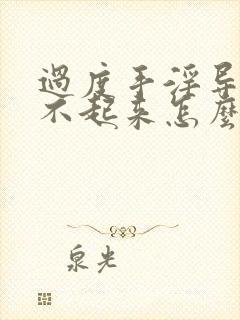 過度手淫导
不起来怎麼
泉光